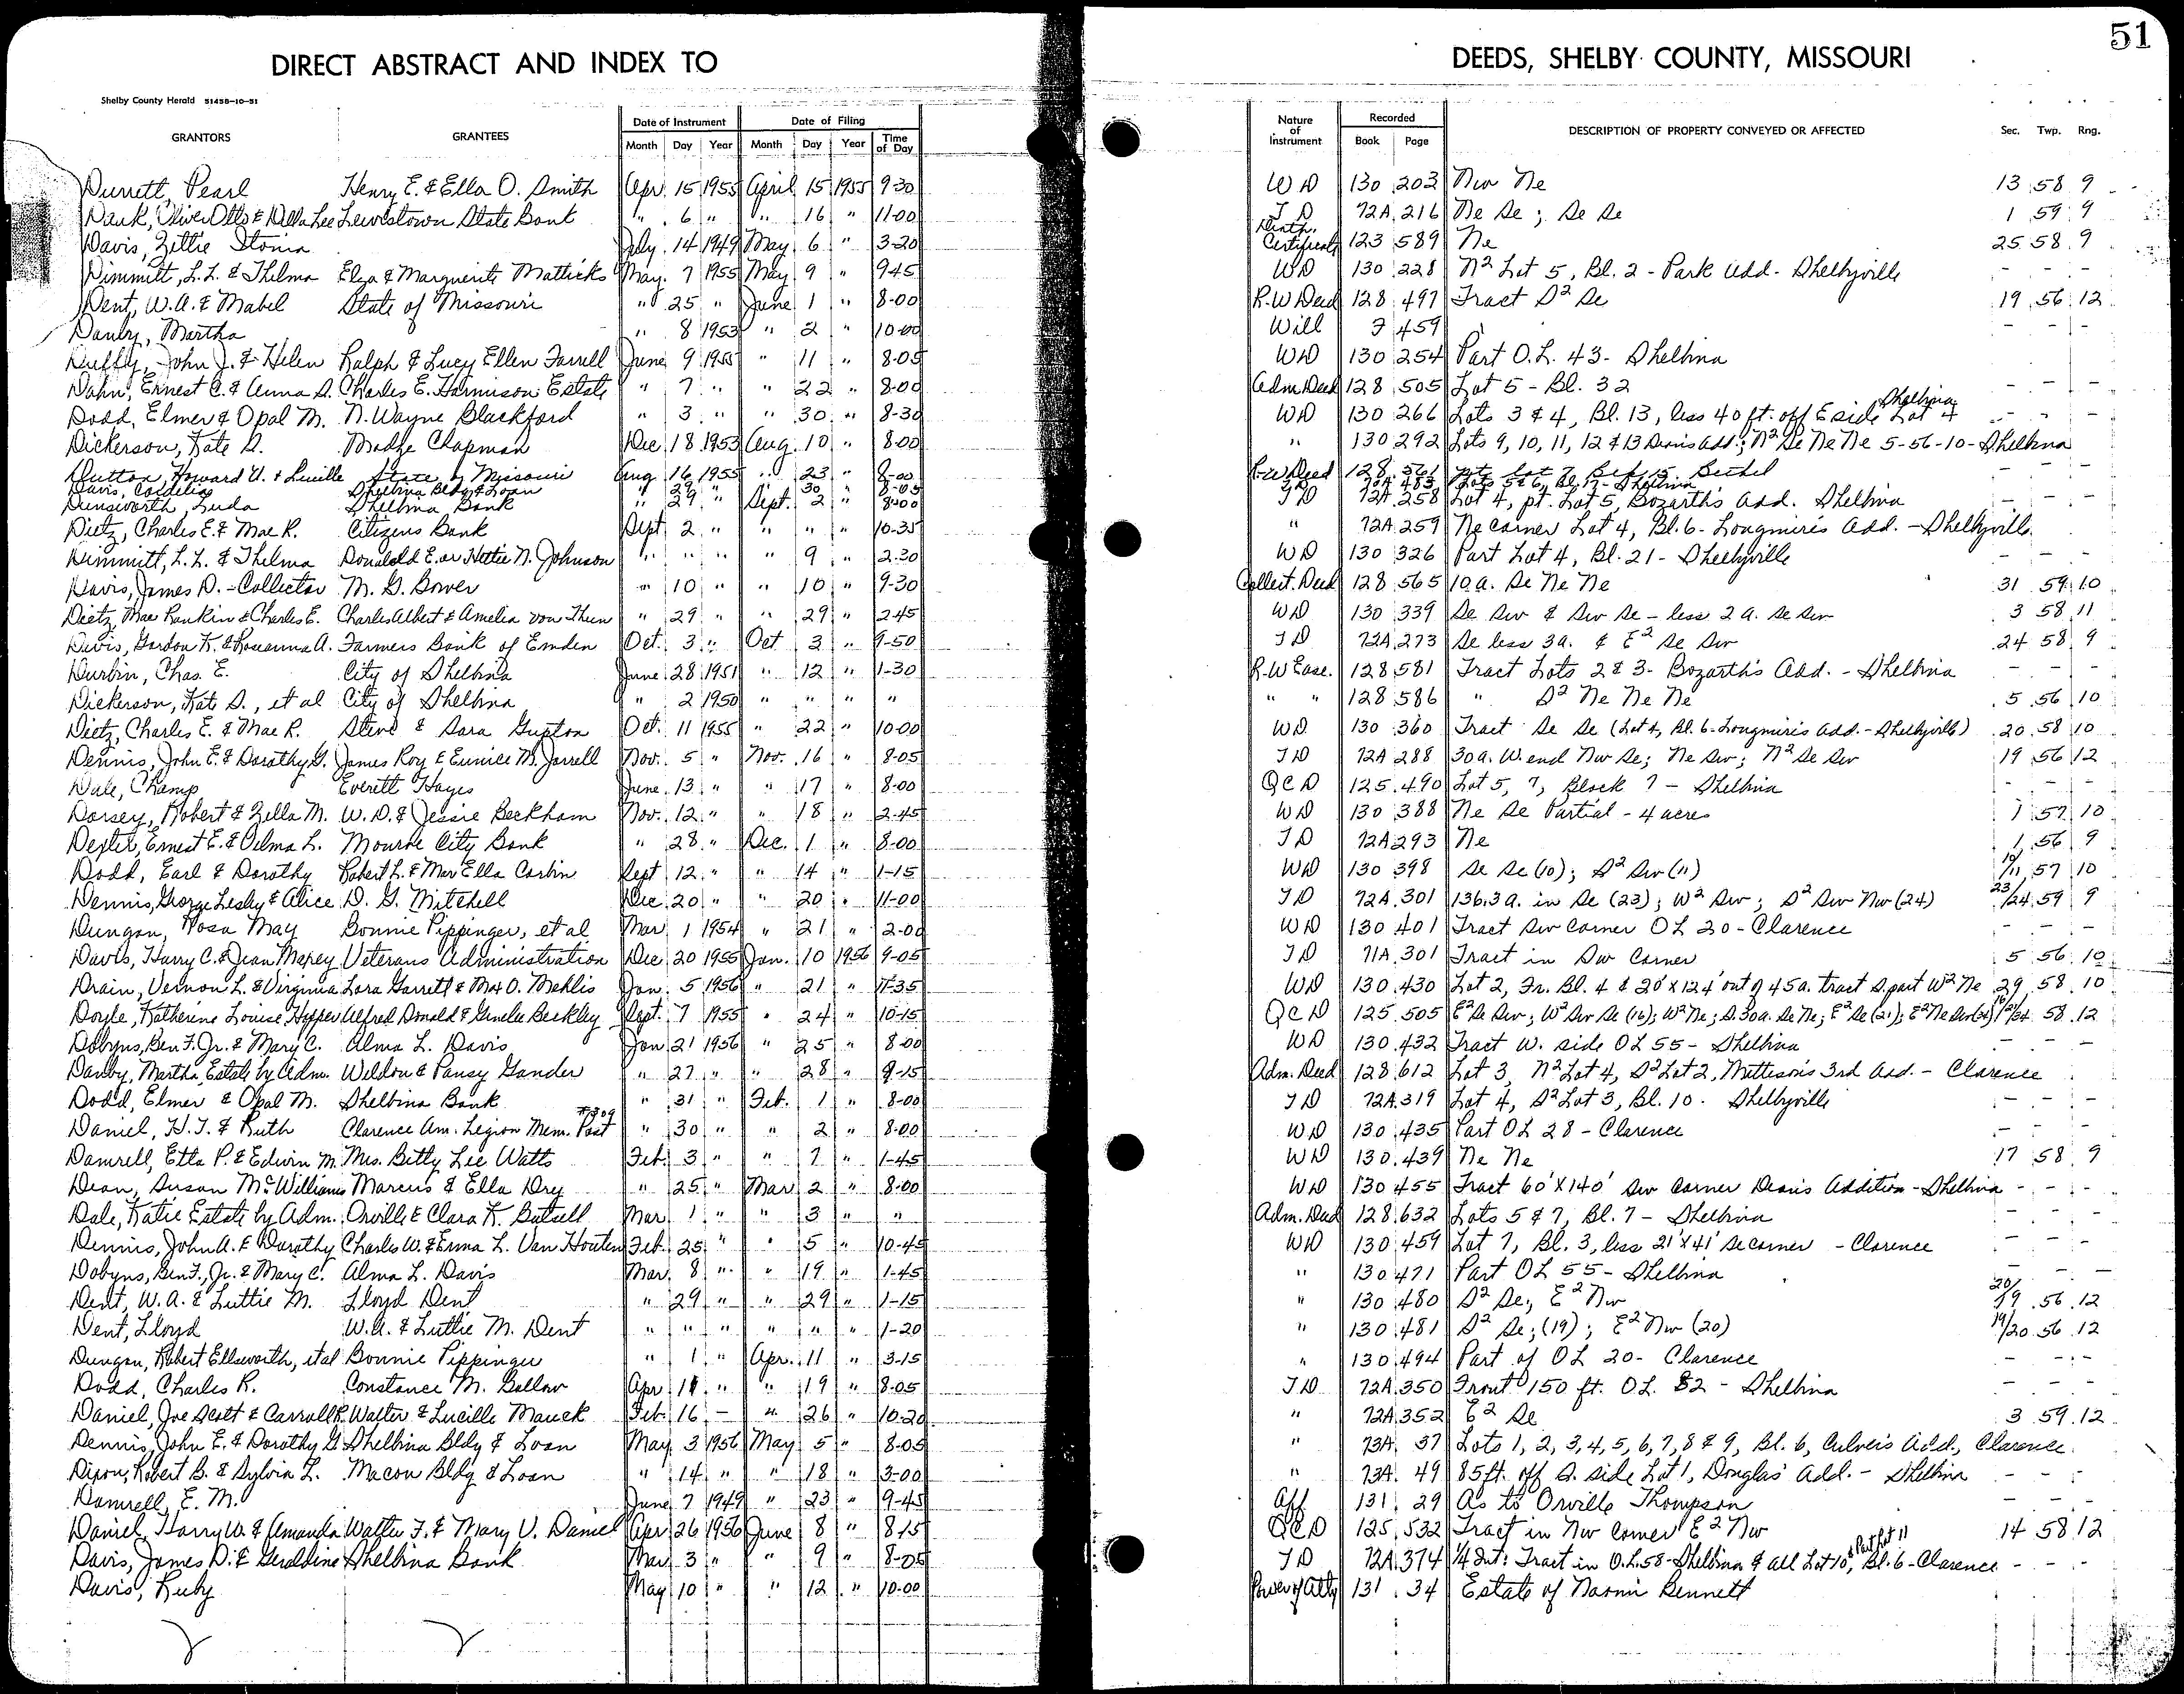 51
DIRECT ABSTRACT AND INDEX TO DEEDS, SHELBY COUNTY, MISSOURI
Shelby County Herald 51458-10-51
GRANTORS GRANTEES Date of Instrument Date of Filing Nature of Instrument Recorded DESCRIPTION OF PROPERTY CONVEYED OR AFFECTED Sec. Twp. Rng.
Month Day Year Month Day Year Time of Day Book Page
Durrett, Pearl Henry E. & Ella O. Smith Apr. 15 1955 April 15 1955 9-30 WD 130 203 Nw Ne 13 58 9
Dauk, Oliver Otts & Della Lee Lewistown State Bank " 6 " " 16 " 11-00 TD 72A 216 Ne Se; Se Se 1 59 9
Davis, Zettie Stonia July 14 1949 May 6 " 3-20 Death Certificate 123 589 Ne 25 58 9
Dimmitt, L.L. & Thelma Elza & Marguerite Matticks May 7 1955 May 9 " 9-45 WD 130 228 N2 Lot 5, Bl. 2 - Park Add - Shelbyville - - -
Dent, W.A. & Mabel State of Missouri " 25 " June 1 " 8-00 R-W Deed 128 497 Tract S2 Se 19 56 12
Danby, Martha " 8 1953 " 2 " 10-00 Will 7 459 - - -
Duffy, John J. & Helen Ralph & Lucy Ellen Farrell June 9 1955 " 11 " 8-05 WD 130 254 Part O.L. 43 - Shelbina
Dahn, Ernest C. & Anna S. Charles E. Harmison Estate " 7 " " 22 " 8-00 Adm Deed 128 505 Lot 5 - Bl. 32 - - -
Dodd, Elmer & Opal M. N. Wayne Blackford " 3 " " 30 " 8-30 WD 130 266 Lots 3 & 4, Bl. 13, less 40 ft. off E side Lot 4 Shelbina - - -
Dickerson, Kate D. Madge Chapman Dec 18 1953 Aug. 10 " 8-00 " 130 292 Lots 9, 10, 11, 12 & 13 Deans Add; N2 Se Ne Ne 5-56-10 - Shelbina
Dutton, Howard U. & Lucille State of Missouri Aug 16 1955 " 23 " 8-00 R-W Deed 128 561 Lot 7, Bethel - - -
Davis, Cordelia Shelbina Bldg & Loan " 29 " " 30 " 8-05 72A 483 Lots 5 & 6, Bl. 17 - Shelbina
Dunsworth, Luda Shelbina Bank " 29 " Sept. 2 " 8-00 TD 72A 258 Lot 4, pt. Lot 5, Bozarth's Add. Shelbina - - -
Dietz, Charles E. & Mae R. Citizens Bank Sept 2 " " " " 10-35 " 72A 259 Ne corner Lot 4, Bl. 6 - Longmire's Add. - Shelbyville
Dimmitt, L.L. & Thelma Donalold E. or Hettie N. Johnson " " " " 9 " 2-30 WD 130 326 Part Lot 4, Bl. 21 - Shelbyville - - -
Davis, James D. - Collector M. G. Bower " 10 " " 10 " 9-30 Collect. Deed 128 565 10 a. Se Ne Ne 31 59 10
Dietz, Mae Rankin & Charles E. Charles Albert & Amelia von Thun " 29 " " 29 " 2-45 WD 130 339 Se Sw & Sw Se - less 2 a. Se Sw 3 58 11
Davis, Gordon K. & Roseanna A. Farmers Bank of Emden Oct. 3 " Oct 3 " 9-50 TD 72A 273 Se less 3a. & E2 Se Sw 24 58 9
Durbin, Chas. E. City of Shelbina June 28 1951 " 12 " 1-30 R-W Ease. 128 581 Tract Lots 2 & 3 - Bozarth's Add. - Shelbina - - -
Dickerson, Kate D., et al City of Shelbina " 2 1950 " " " " " " 128 586 " S2 Ne Ne Ne 5 56 10
Dietz, Charles E. & Mae R. Steve & Sara Gupton Oct. 11 1955 " 22 " 10-00 WD 130 360 Tract Se Se (Lot 4, Bl. 6 - Longmire's Add. - Shelbyville) 20 58 10
Dennis, John E. & Dorothy G. James Roy & Eunice M. Jarrell Nov. 5 " Nov. 16 " 8-05 TD 72A 288 30 a. W. end Nw Se; Ne Sw; N2 Se Sw 19 56 12
Dale, Champ Everett Hayes June 13 " " 17 " 8-00 QCD 125 490 Lot 5, 7, Block 7 - Shelbina - - -
Dorsey, Robert & Zella M. W.D. & Jessie Beckham Nov. 12 " " 18 " 2-45 WD 130 388 Ne Se Partial - 4 acres 1 57 10
Dexter, Ernest E. & Velma L. Monroe City Bank " 28 " Dec. 1 " 8-00 TD 72A 293 Ne 1 56 9
Dodd, Earl & Dorothy Robert L. & Mar Ella Corbin Sept 12 " " 14 " 1-15 WD 130 398 Se Se (10); S2 Sw (11) 10/11 57 10
Dennis, George Lesley & Alice D. G. Mitchell Dec 20 " " 20 " 11-00 TD 72A 301 136.3 a. in Se (23); W2 Sw; S2 Sw Nw (24) 23/24 59 9
Dungan, Rosa May Bonnie Pippinger, et al Mar 1 1954 " 21 " 2-00 WD 130 401 Tract Sw Corner OL 20 - Clarence - - -
Davis, Harry C. & Jean Maxey Veterans Administration Dec 20 1955 Jan. 10 1956 9-05 TD 71A 301 Tract in Sw Corner 5 56 10
Drain, Vernon L. & Virginia Lora Garrett & Max O. Mehlis Jan. 5 1956 " 21 " 11-35 WD 130 430 Lot 2, Fr. Bl. 4 & 20' x 124' out of 45 a. tract S. part W2 Ne 29 58 10
Doyle, Katherine Louise Hopper Alfred Donald & Genelee Beckley Sept. 7 1955 " 24 " 10-15 QCD 125 505 E2 Se Sw; W2 Sw Se (16); W2 Ne; S 30a. Se Ne; E2 Se (21); 58 12
Dobyns, Ben F. Jr. & Mary C. Alma L. Davis Jan 21 1956 " 25 " 8-00 WD 130 432 Tract W. side OL 55 - Shelbina - - -
Danby, Martha, Estate by Adm. Weldon & Pansy Gander " 27 " " 28 " 9-15 Adm. Deed 128 612 Lot 3, N2 Lot 4, S2 Lot 2, Mettison's 3rd Add. - Clarence
Dodd, Elmer & Opal M. Shelbina Bank " 31 " Feb. 1 " 8-00 TD 72A 319 Lot 4, S2 Lot 3, Bl. 10 - Shelbyville - - -
Daniel, H.T. & Ruth Clarence Am. Legion Mem. Post #309 " 30 " " 2 " 8-00 WD 130 435 Part OL 28 - Clarence - - -
Damrell, Etta P. & Edwin M. Mrs. Betty Lee Watts Feb. 3 " " 7 " 1-45 WD 130 439 Ne Ne 17 58 9
Dean, Susan McWilliams Marcus & Ella Dry " 25 " Mar 2 " 8-00 WD 130 455 Tract 60' x 140' Sw Corner Dean's Addition - Shelbina - - -
Dale, Katie Estate by Adm. Orville & Clara K. Butsell Mar 1 " " 3 " " Adm. Deed 128 632 Lots 5 & 7, Bl. 7 - Shelbina - - -
Dennis, John A. & Dorothy Charles W. & Erma L. Van Houten Feb. 25 " " 5 " 10-45 WD 130 459 Lot 7, Bl. 3, less 21' x 41' Se corner - Clarence - - -
Dobyns, Ben F., Jr. & Mary C. Alma L. Davis Mar. 8 " " 19 " 1-45 " 130 471 Part OL 55 - Shelbina - - -
Dent, W.A. & Luttie M. Lloyd Dent " 29 " " 29 " 1-15 " 130 480 S2 Se; E2 Nw 20/19 56 12
Dent, Lloyd W.A. & Luttie M. Dent " " " " " " 1-20 " 130 481 S2 Se; (19); E2 Nw (20) 19/20 56 12
Dungan, Robert Ellsworth, et al Bonnie Pippinger " 1 " Apr. 11 " 3-15 " 130 494 Part of OL 20 - Clarence - - -
Dodd, Charles R. Constance M. Bellow Apr 11 " " 19 " 8-05 TD 72A 350 Front 150 ft. OL. 82 - Shelbina - - -
Daniel, Joe Scott & Carroll R. Walter & Lucille Mauck Feb. 16 - " 26 " 10-20 " 72A 352 E2 Se 3 59 12
Dennis, John E. & Dorothy G Shelbina Bldg & Loan May 3 1956 May 5 " 8-05 " 73A 37 Lots 1, 2, 3, 4, 5, 6, 7, 8 & 9, Bl. 6, Culver's Add., Clarence
Dixon, Robert B. & Sylvia L. Macon Bldg & Loan " 14 " " 18 " 3-00 " 73A 49 85 ft. off S. side Lot 1, Douglas' Add. - Shelbina - - -
Damrell, E. M. June 7 1949 " 23 " 9-45 Aff 131 29 As to Orville Thompson - - -
Daniel, Harry W. & Amanda Walter F. & Mary V. Daniel Apr 26 1956 June 8 " 8-15 QCD 125 532 Tract in Nw Corner E2 Nw 14 58 12
Davis, James D. & Geraldine Shelbina Bank Mar 3 " " 9 " 8-05 TD 72A 374 1/4 Int: Tract in O.L. 58 - Shelbina & all Lot 10, & Part Lot 11 Bl. 6 - Clarence - - -
Davis, Ruby May 10 " " 12 " 10-00 Power of Atty 131 34 Estate of Naomi Bennett